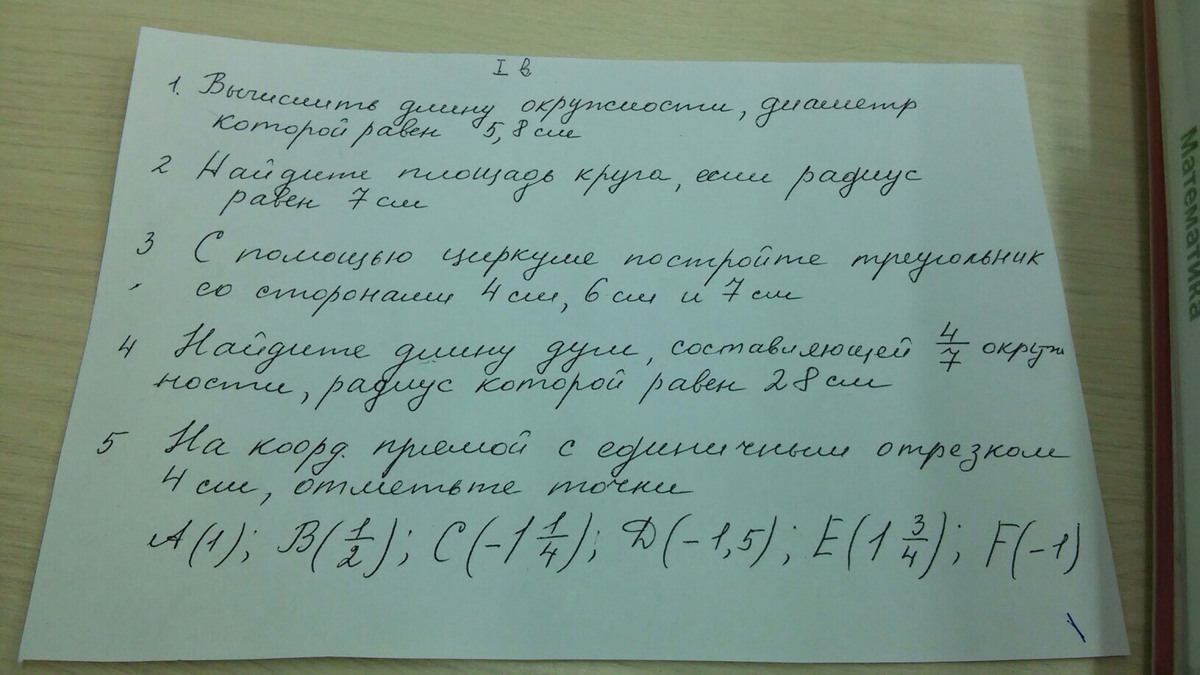 I в
1. Вычислить длину окружности, диаметр
которой равен 5,8 см
2 Найдите площадь круга, если радиус
равен 7 см
3 С помощью циркуля постройте треугольник
со сторонами 4 см, 6 см и 7 см
4 Найдите длину дуги, составляющей 4/7 окруж
ности, радиус которой равен 28 см
5 На коорд. прямой с единичным отрезком
4 см, отметьте точки
A(1); B(1/2); C(-1 1/4); D(-1,5); E(1 3/4); F(-1)
Математика